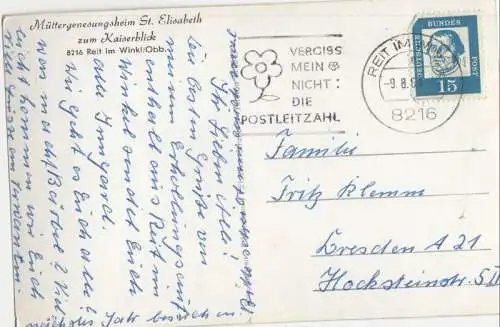 Müttergenesungsheim St. Elisabeth
zum Kaiserblick
8216 Reit im Winkl/Obb.
VERGISS
MEIN
NICHT:
DIE
POSTLEITZAHL
REIT IM WINKL
-9.8.
8216
DEUTSCHE
BUNDES
POST
15
Ihr Lieben Alle!
Die besten Grüße von
meinem Erholungsauf-
enthalt aus Reit im
Winkel sendet Euch
Irmgard.
Wie geht es Euch alle?
Was macht Bärbel?
nicht kommen wir Euch
nächstes Jahr besuchen.
Familie
Fritz Klemm
Dresden A 21
Hocksteinstr. 5